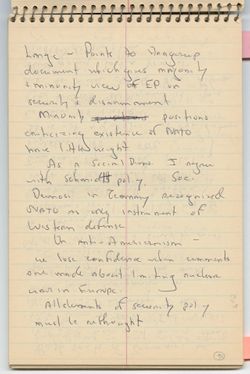 Lange - Points to Haagerup
document which gives majority
+ minority view of EP on
security & disarmament
Minority positions
criticizing existence of NATO
have little weight
As a Social Democ. I agree
with Schmidt policy Soc.
Democ. in Germany recognized
NATO as only instrument of
Western defense
On anti-Americanism -
we lose confidence when comments
are made about limiting nuclear
war in Europe.
All elements of security policy
must be rethought